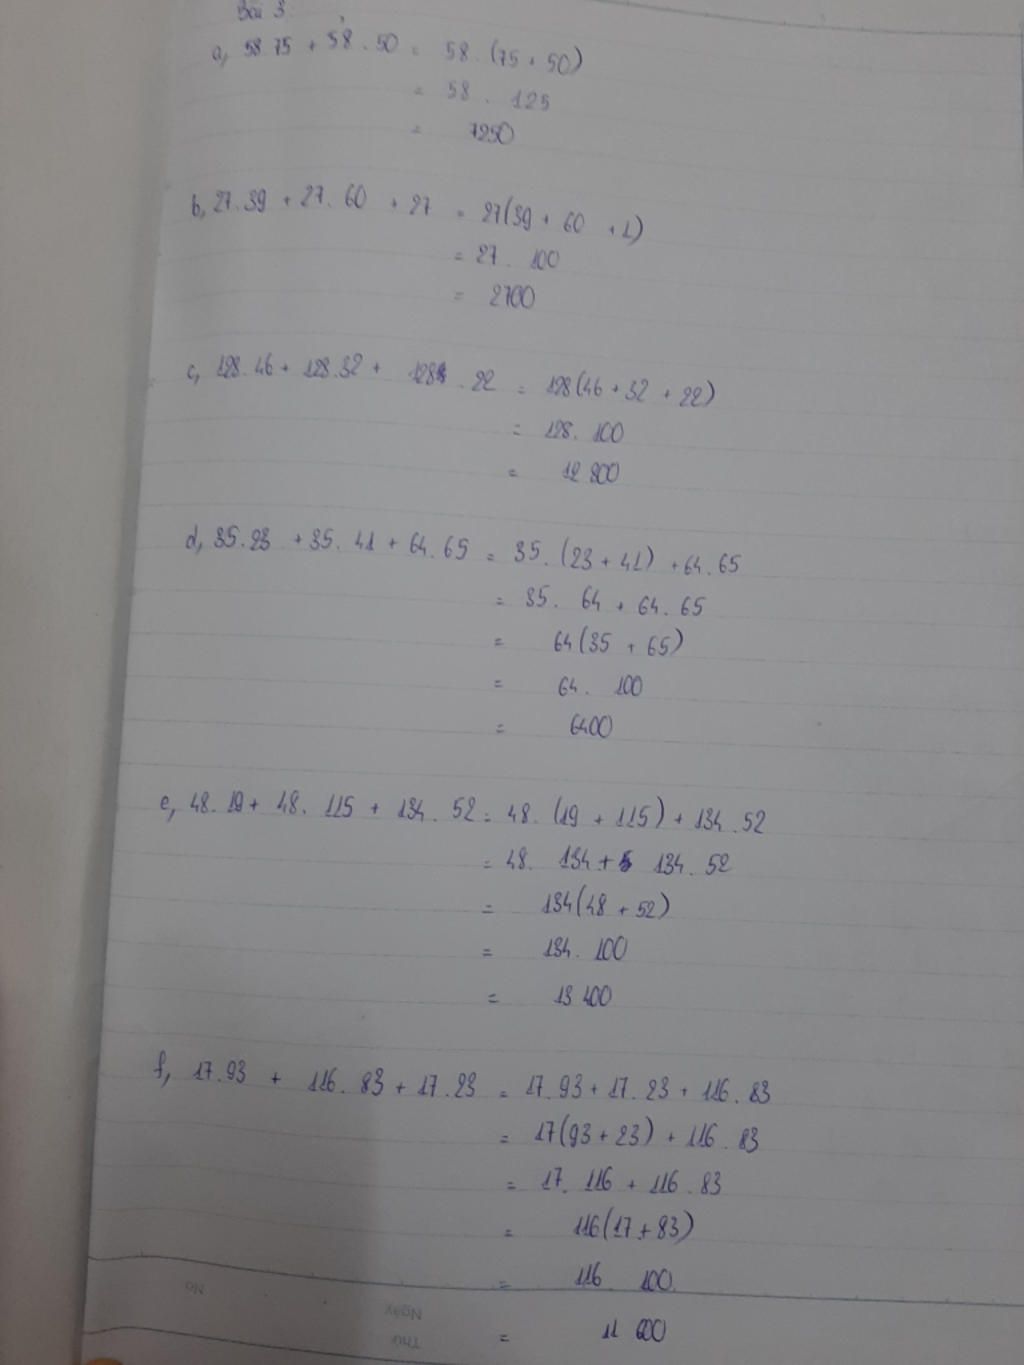 Bài 3
a, 58.75 + 58.50 = 58.(75+50)
= 58.125
= 7250
b, 27.39 + 27.60 + 27 = 27(39 + 60 + 1)
= 27.100
= 2700
c, 128.46 + 128.32 + 128.22 = 128(46 + 32 + 22)
= 128.100
= 12 800
d, 35.23 + 35.41 + 64.65 = 35.(23 + 41) + 64.65
= 35.64 + 64.65
= 64(35 + 65)
= 64.100
= 6400
e, 48.19 + 48.115 + 134.52 = 48.(19 + 115) + 134.52
= 48.134 + 134.52
= 134(48 + 52)
= 134.100
= 13 400
f, 17.93 + 116.83 + 17.23 = 17.93 + 17.23 + 116.83
= 17(93 + 23) + 116.83
= 17.116 + 116.83
= 116(17 + 83)
= 116 100
= 11 600
No
Ngày
Thứ